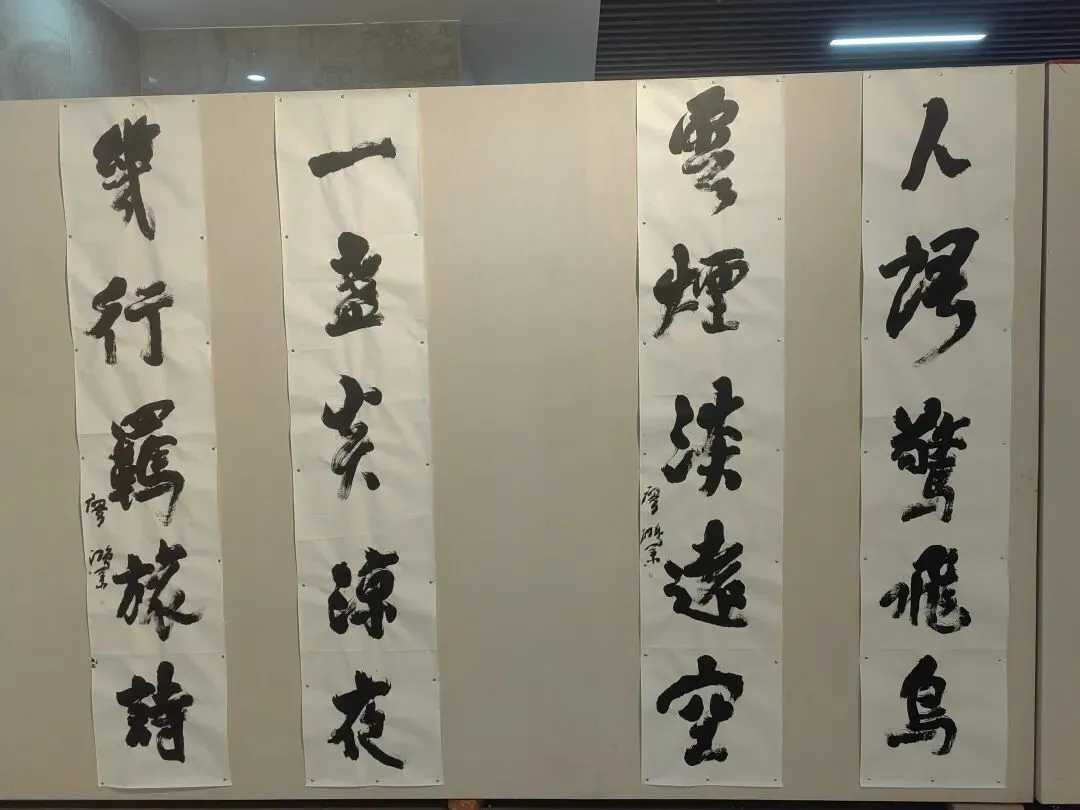 人語驚飛鳥
雲煙淡遠空
廖鴻
一盞炎涼夜
幾行羈旅詩
廖鴻